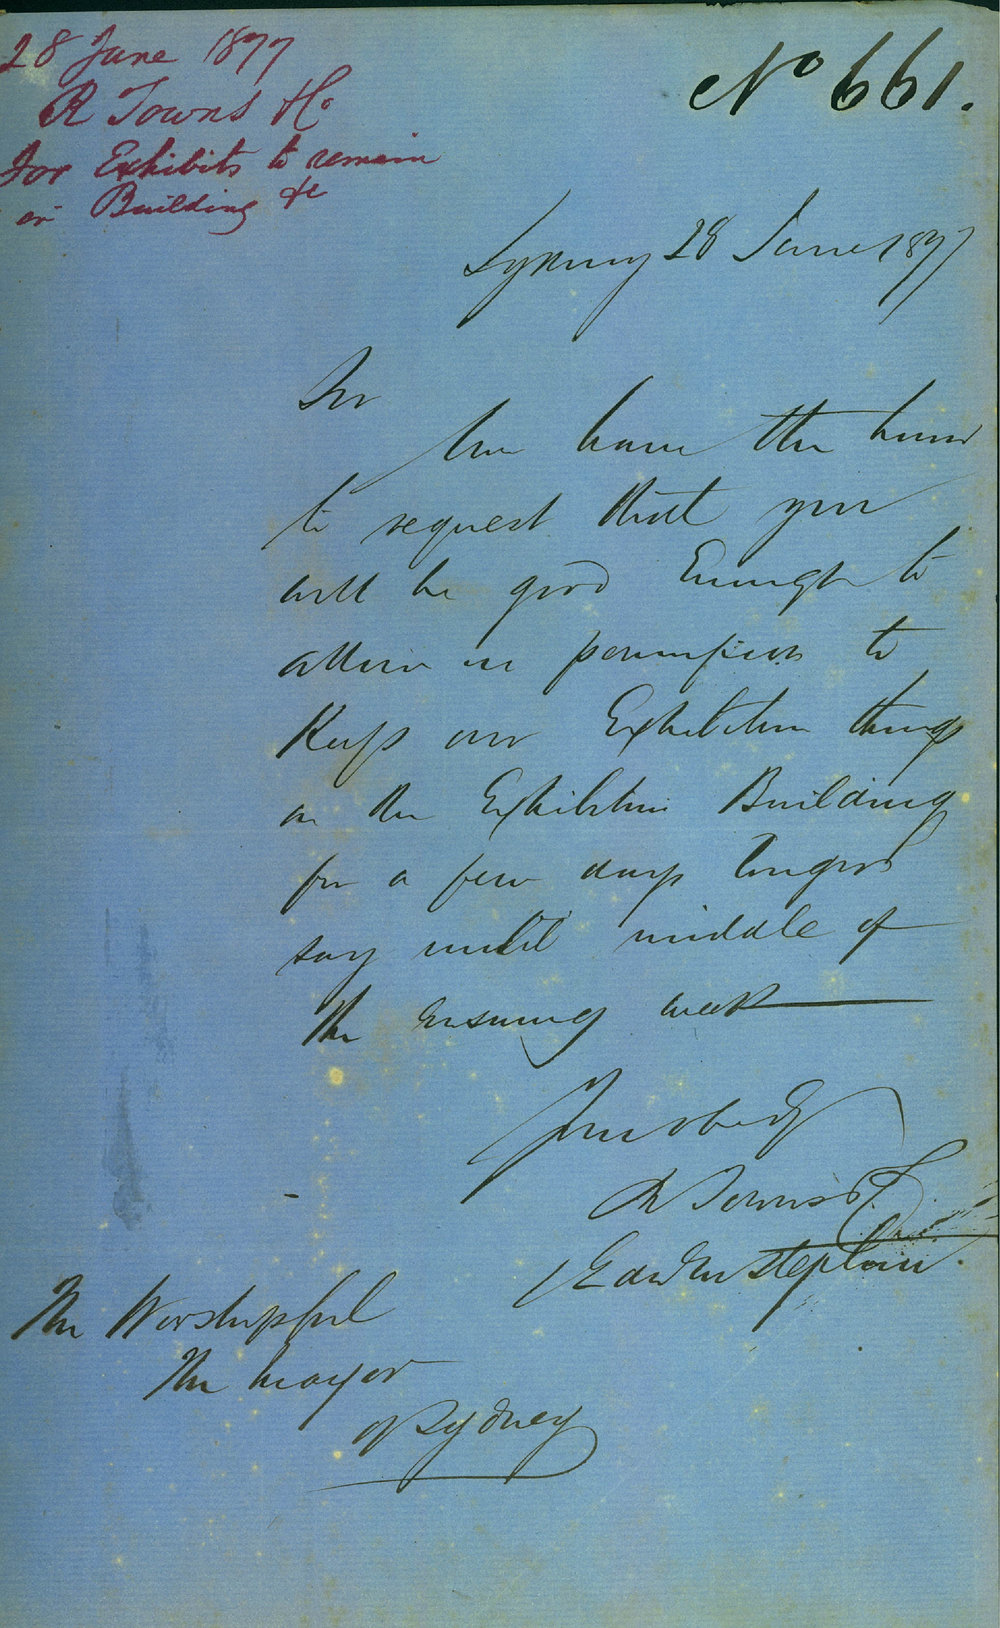 28 June 1877
R Towns & Co
For Exhibits to remain
in Building &c
No 661.
Sydney 28 June 1877
Sir
We have the honor
to request that you
will be good Enough to
allow us permission to
Keep our Exhibition things
in the Exhibition Building
for a few days longer
say until middle of
the ensuing week
Your obed
R Towns & Co
The Worshipful
The Mayor
of Sydney